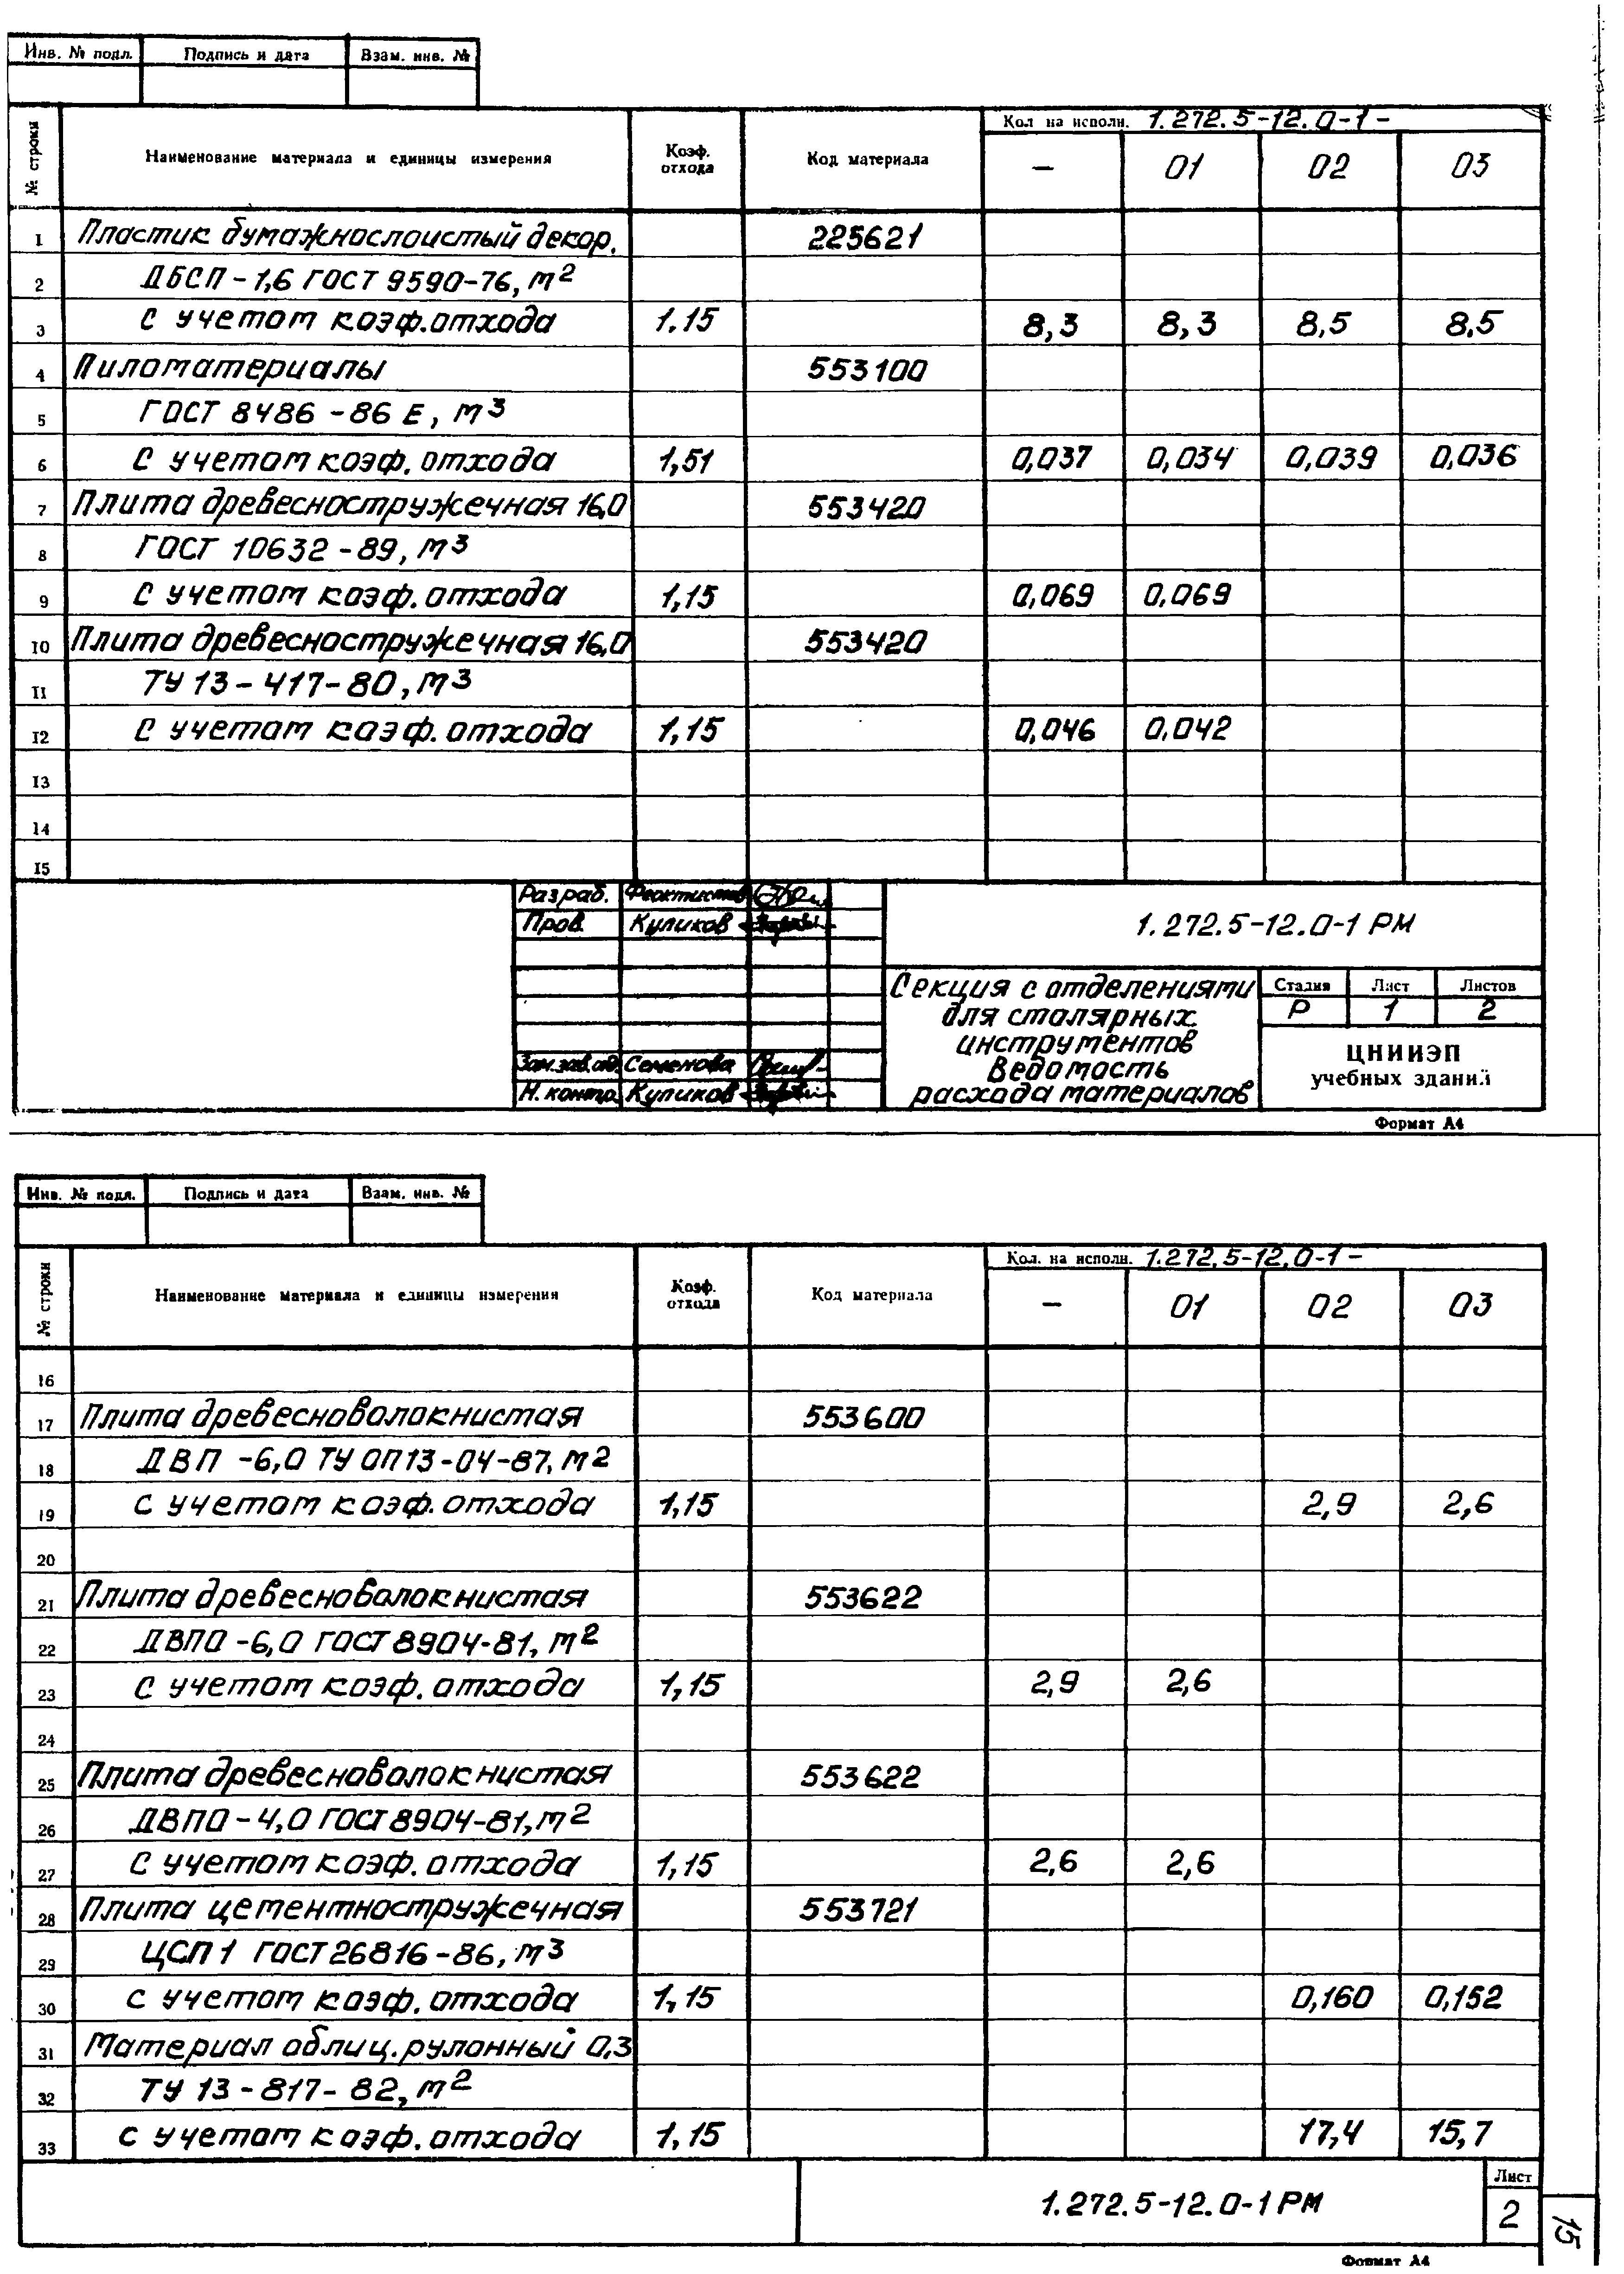 Инв. № подл. Подпись и дата Взам. инв. №
№ строки Наименование материала и единицы измерения Коэф. отхода Код материала Кол на исполн. 1.272.5-12.0-1-
— 01 02 03
1 Пластик бумажнослоистый декор. 225621
2 ДБСП-1,6 ГОСТ 9590-76, м²
3 С учетом коэф. отхода 1.15 8,3 8,3 8,5 8.5
4 Пиломатериалы 553100
5 ГОСТ 8486-86 Е, м³
6 С учетом коэф. отхода 1,51 0,037 0,034 0,039 0,036
7 Плита древесностружечная 16,0 553420
8 ГОСТ 10632-89, м³
9 С учетом коэф. отхода 1,15 0,069 0,069
10 Плита древесностружечная 16,0 553420
11 ТУ 13-417-80, м³
12 С учетом коэф. отхода 1,15 0,046 0,042
13
14
15
Разраб. Феоктистов
Пров. Куликов
1.272.5-12.0-1 РМ
Секция с отделениями
для столярных
инструментов
Ведомость
расхода материалов
Стадия Лист Листов
Р 1 2
ЦНИИЭП
учебных зданий
Зам.зав.од. Семенова
Н. контр. Куликов
Формат А4
Инв. № подл. Подпись и дата Взам. инв. №
№ строки Наименование материала и единицы измерения Коэф. отхода Код материала Кол. на исполн. 1.272.5-12.0-1-
— 01 02 03
16
17 Плита древесноволокнистая 553600
18 ДВП -6,0 ТУ ОП13-04-87, м²
19 С учетом коэф. отхода 1,15 2,9 2,6
20
21 Плита древесноволокнистая 553622
22 ДВПО-6,0 ГОСТ 8904-81, м²
23 С учетом коэф. отхода 1,15 2,9 2,6
24
25 Плита древесноволокнистая 553622
26 ДВПО-4,0 ГОСТ 8904-81, м²
27 С учетом коэф. отхода 1,15 2,6 2,6
28 Плита цементностружечная 553721
29 ЦСП 1 ГОСТ 26816-86, м³
30 с учетом коэф. отхода 1,15 0,160 0,152
31 Материал облиц. рулонный 0,3
32 ТУ 13-817-82, м²
33 с учетом коэф. отхода 1,15 17,4 15,7
1.272.5-12.0-1РМ
Лист
2
15
Формат А4